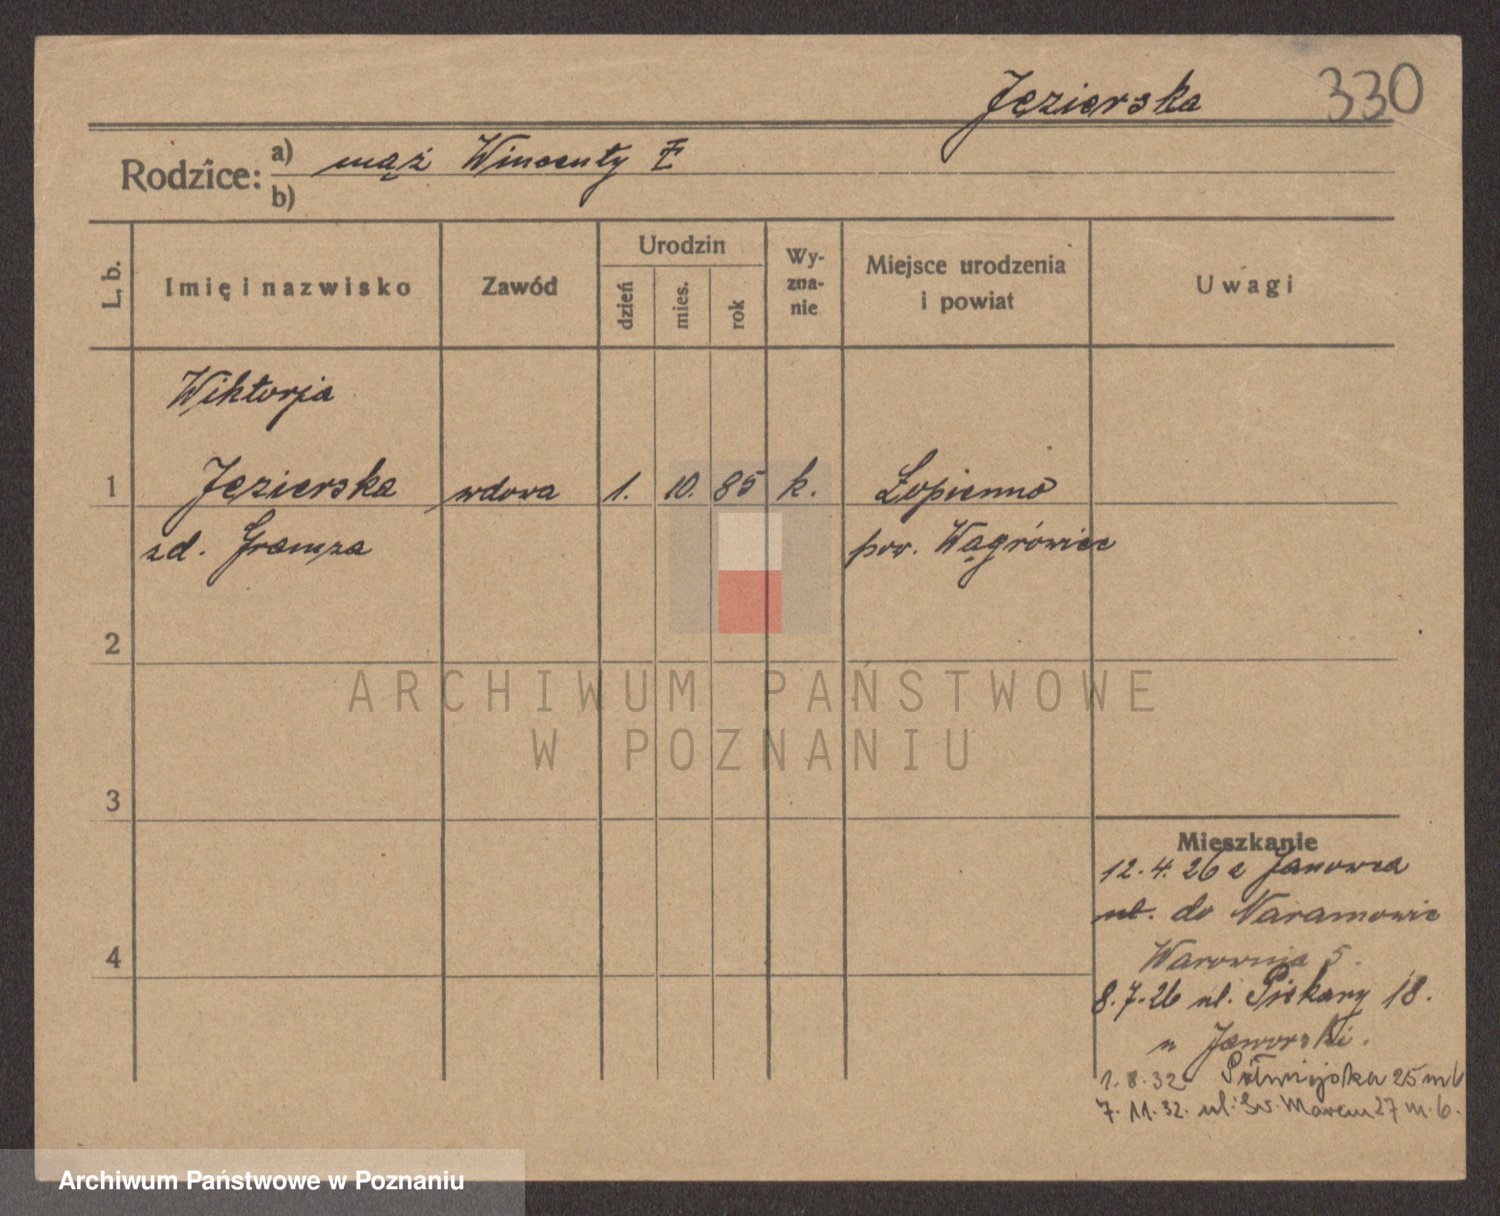 Jęzierska 330
Rodzice: a) mąż Wincenty
b)
L. b. Imię i nazwisko Zawód Urodzin dzień mies. rok Wyznanie Miejsce urodzenia i powiat Uwagi
Wiktorja
1 Jęzierska wdowa 1. 10. 85 k. Łopienno
zd. Gramza pow. Wągrówiec
2
ARCHIWUM PAŃSTWOWE
W POZNANIU
3
Mieszkanie
12.4.26 z Janowca
ul. do Naramowic
4
Warownia 5.
8.7.26 ul. Piekary 18.
u Jaworski.
1.8.32 25 m 6
7.11.32. ul. Św. Marcin 27 m. 6.
Archiwum Państwowe w Poznaniu